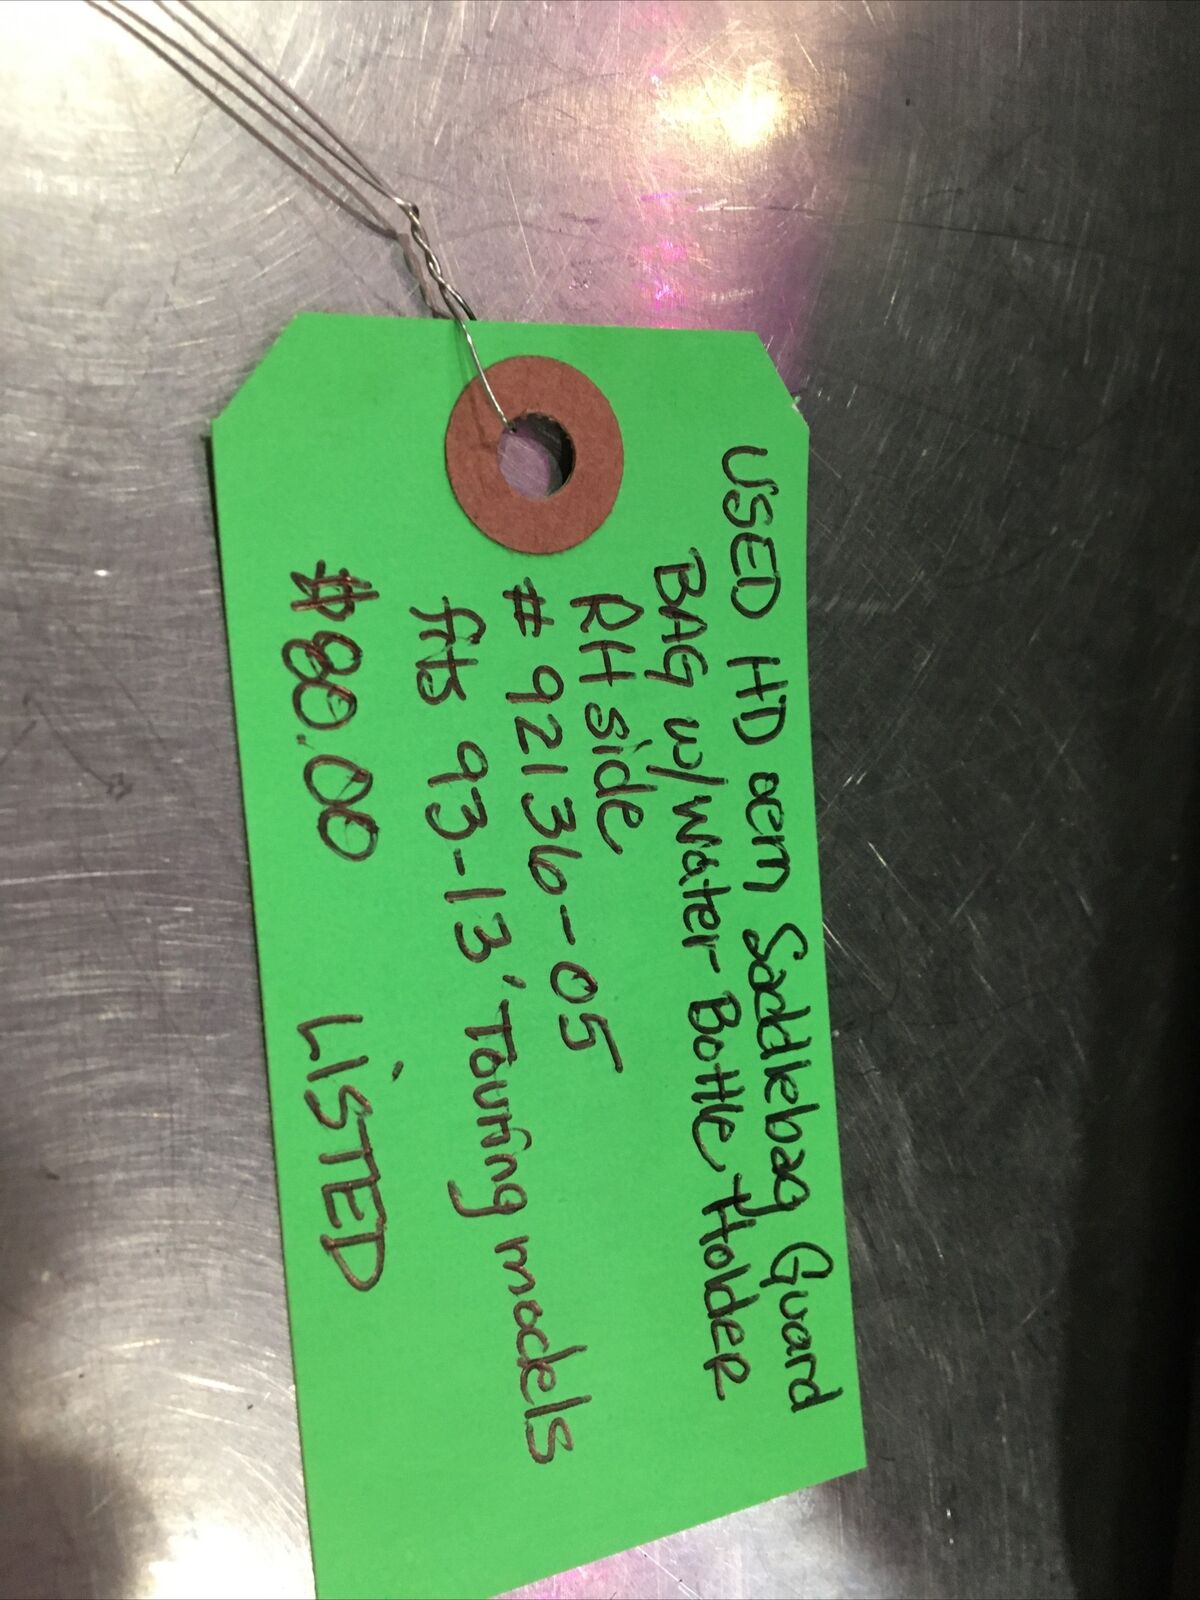 USED HD oem Saddlebag Guard
BAG w/water Bottle Holder
RH side
# 92136-05
fits 93-13' Touring models
$80.00 LISTED